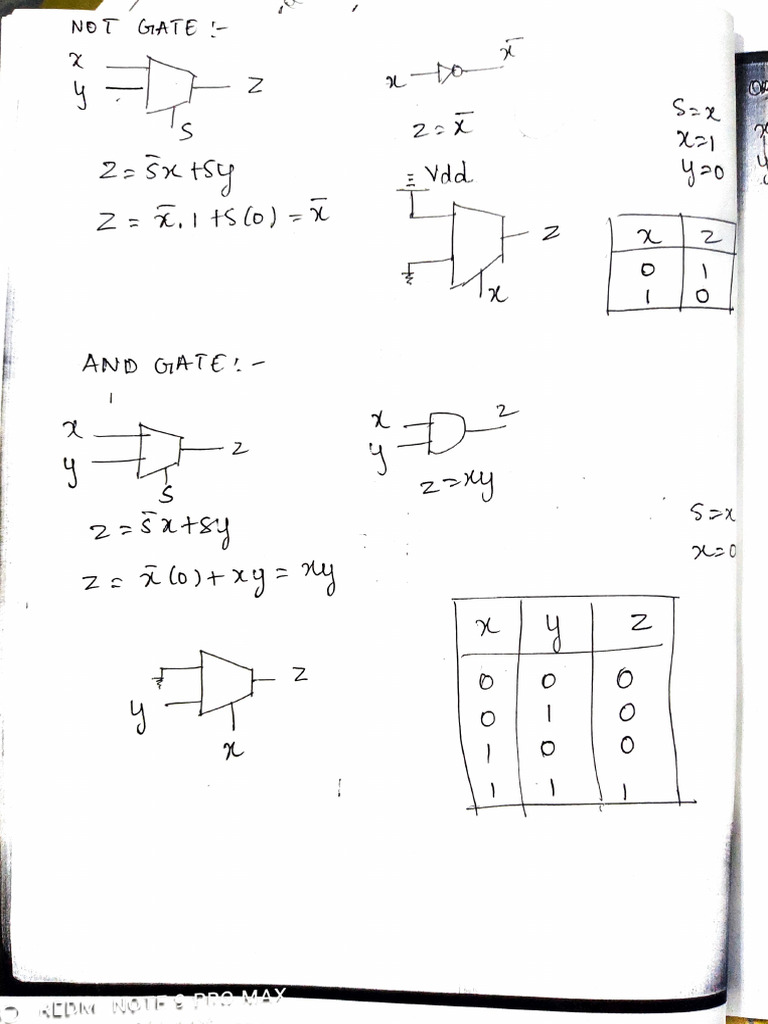 NOT GATE :-
x
y
Z
S
x
x̄
Z = x̄
S = x
x = 1
y = 0
Z = s̄x + sy
Z = x̄.1 + S(0) = x̄
Vdd
Z
x
x Z
0 1
1 0
AND GATE :-
x
y
Z
S
x
y
Z
Z = xy
Z = s̄x + sy
Z = x̄(0) + xy = xy
S = x
x = 0
y
Z
x
x y Z
0 0 0
0 1 0
1 0 0
1 1 1
REDMI NOTE 9 PRO MAX